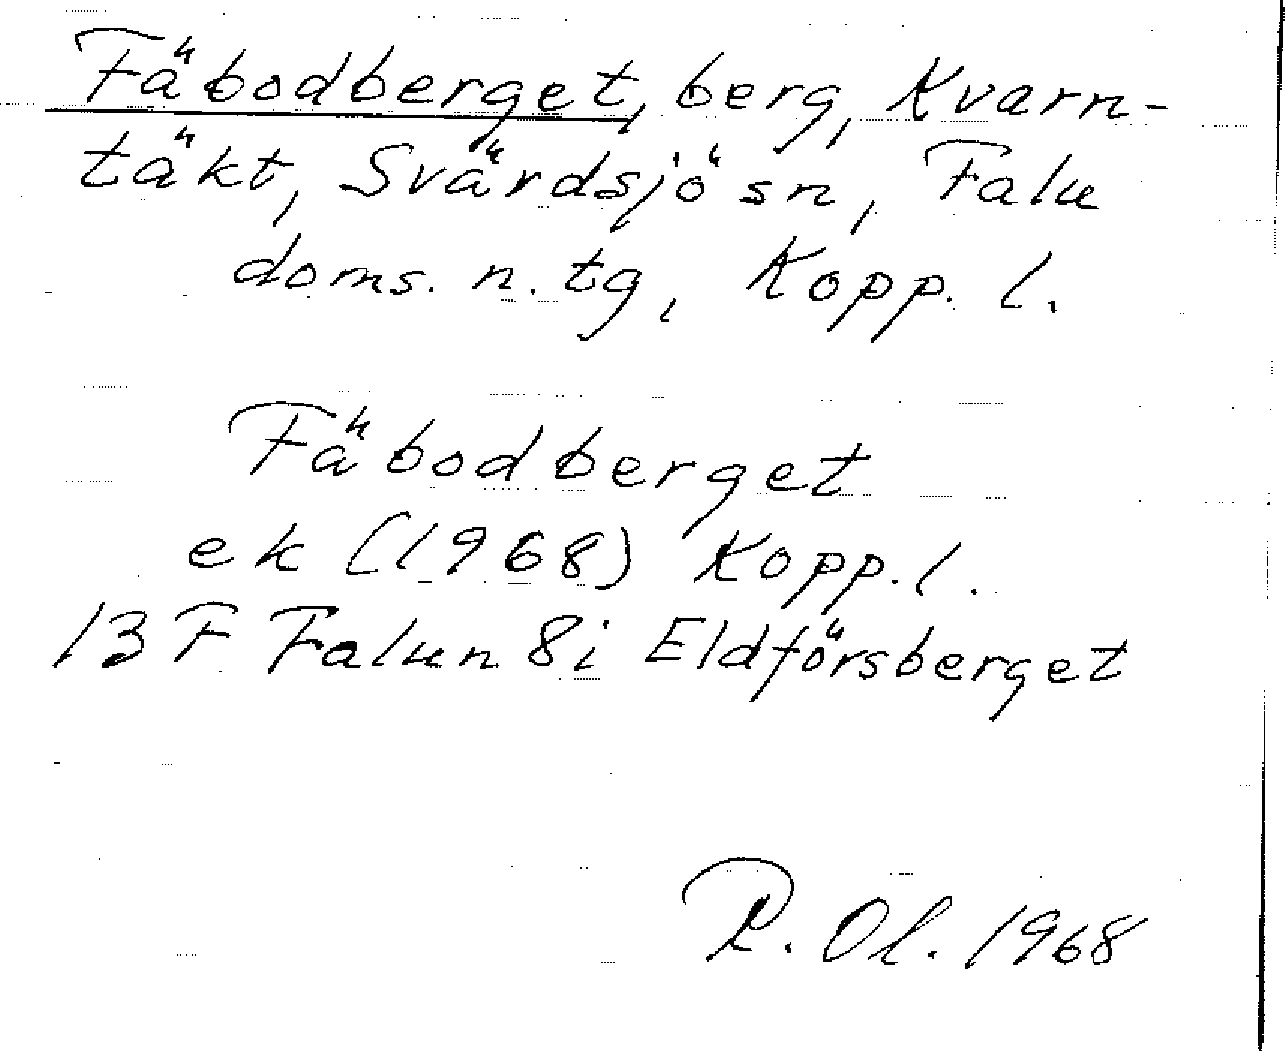 Fäbodberget, berg, Kvarn-
täkt, Svärdsjö sn, Falu
doms. n. tg, Kopp. l.
Fäbodberget
ek (1968) Kopp. l.
13 F Falun 8i Eldförsberget
P. Ol. 1968